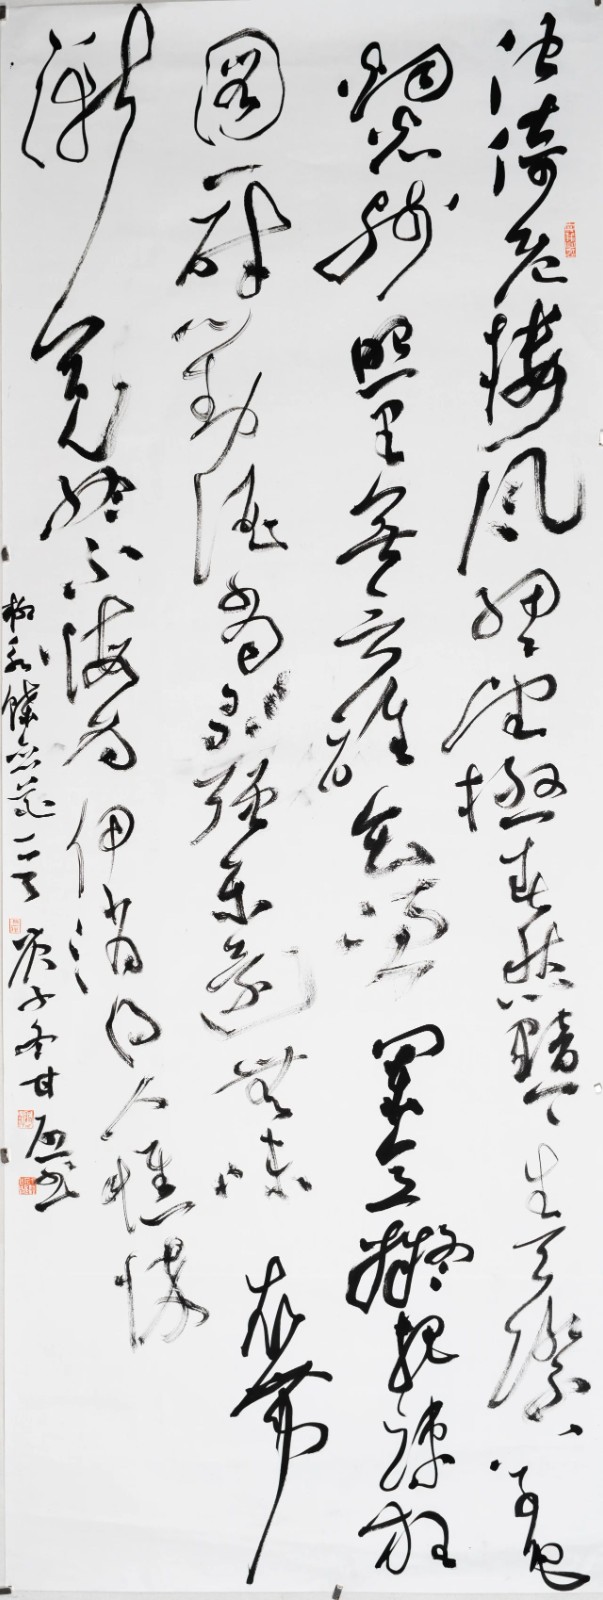 佇倚危樓風細細望極春愁黯黯生天際草色
烟光殘照里無言誰會憑闌意擬把疏狂
圖一醉對酒當歌強樂還無味衣帶
漸寬終不悔為伊消得人憔悴
柳永蝶戀花一首庚子冬甘